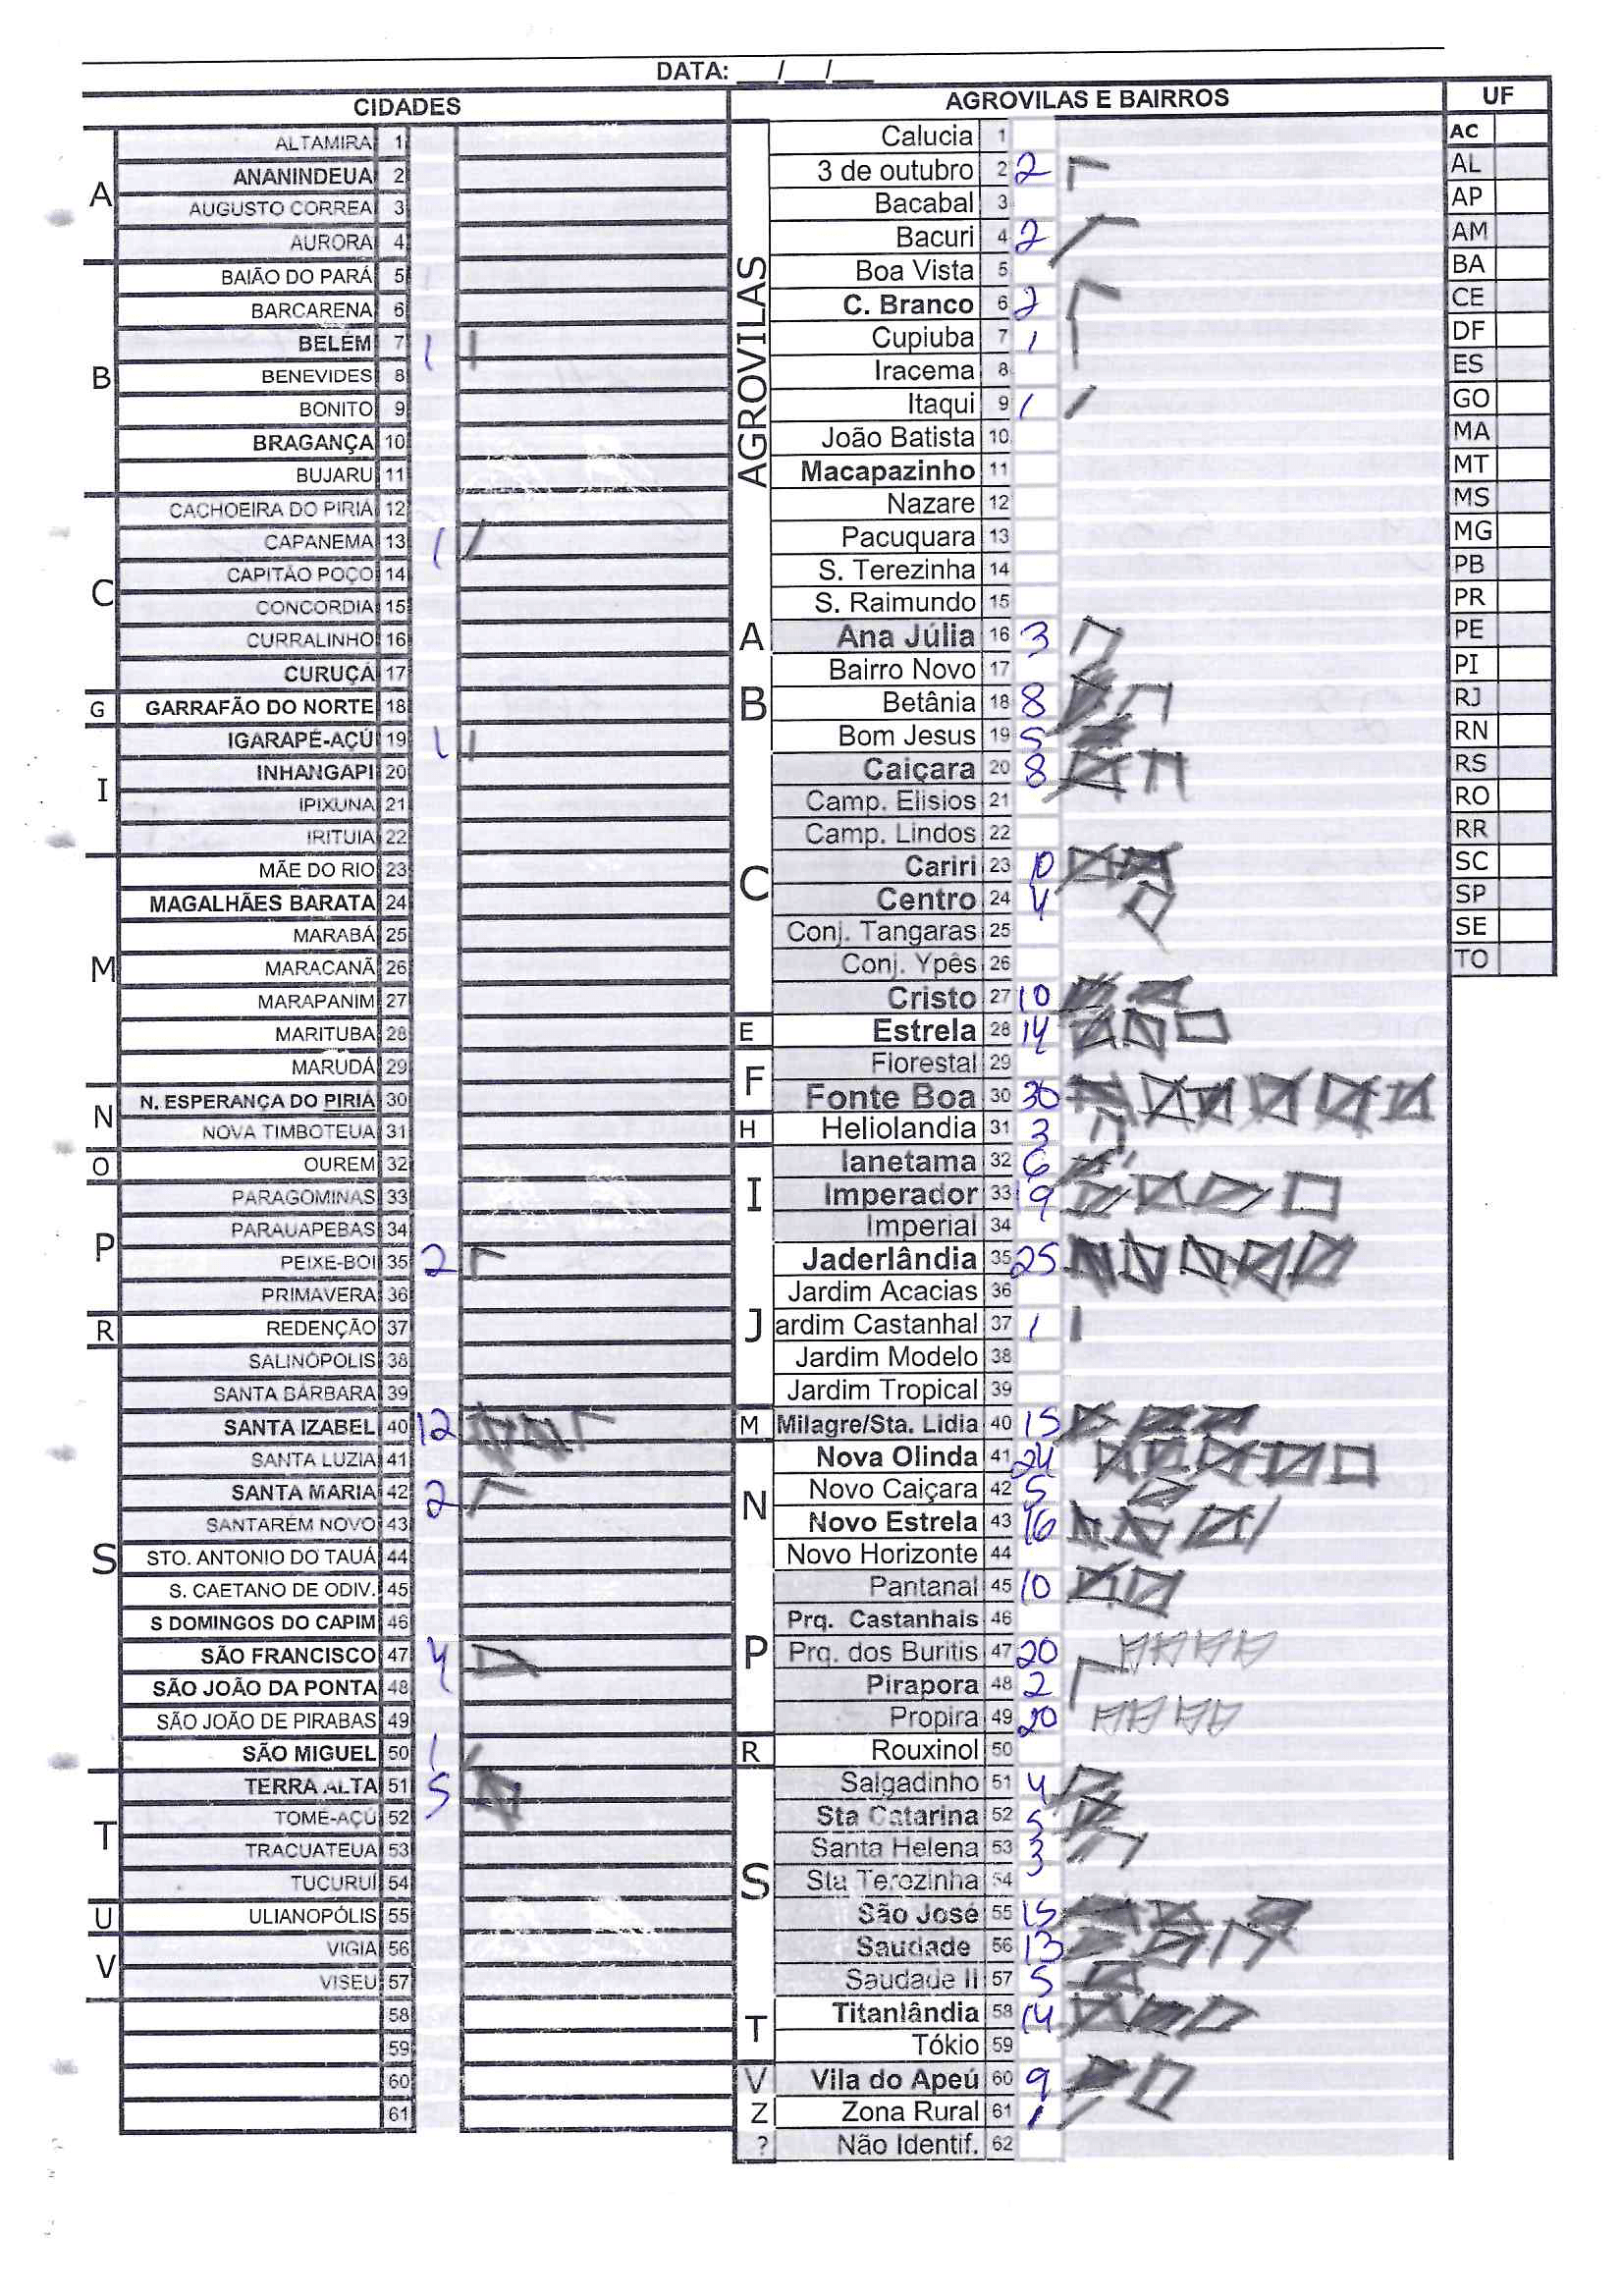 DATA: ___/___/___
CIDADES
A
ALTAMIRA 1
ANANINDEUA 2
AUGUSTO CORREA 3
AURORA 4
B
BAIÃO DO PARÁ 5
BARCARENA 6
BELÉM 7 1
BENEVIDES 8
BONITO 9
BRAGANÇA 10
BUJARU 11
C
CACHOEIRA DO PIRIÁ 12
CAPANEMA 13 1
CAPITÃO POÇO 14
CONCORDIA 15
CURRALINHO 16
CURUÇÁ 17
G
GARRAFÃO DO NORTE 18
I
IGARAPÉ-AÇÚ 19 1
INHANGAPI 20
IPIXUNA 21
IRITUIA 22
M
MÃE DO RIO 23
MAGALHÃES BARATA 24
MARABÁ 25
MARACANÃ 26
MARAPANIM 27
MARITUBA 28
MARUDÁ 29
N
N. ESPERANÇA DO PIRIÁ 30
NOVA TIMBOTEUA 31
O
OUREM 32
P
PARAGOMINAS 33
PARAUAPEBAS 34
PEIXE-BOI 35 2
PRIMAVERA 36
R
REDENÇÃO 37
S
SALINÓPOLIS 38
SANTA BÁRBARA 39
SANTA IZABEL 40 12
SANTA LUZIA 41
SANTA MARIA 42 2
SANTARÉM NOVO 43
STO. ANTONIO DO TAUÁ 44
S. CAETANO DE ODIV. 45
S DOMINGOS DO CAPIM 46
SÃO FRANCISCO 47 4
SÃO JOÃO DA PONTA 48
SÃO JOÃO DE PIRABAS 49
SÃO MIGUEL 50 1
T
TERRA ALTA 51 5
TOMÉ-AÇU 52
TRACUATEUA 53
TUCURUÍ 54
U
ULIANOPÓLIS 55
V
VIGIA 56
VISEU 57
58
59
60
61
AGROVILAS E BAIRROS
AGROVILAS
Calucia 1
3 de outubro 2 2
Bacabal 3
Bacuri 4 2
Boa Vista 5
C. Branco 6 2
Cupiuba 7 1
Iracema 8
Itaqui 9 1
João Batista 10
Macapazinho 11
Nazare 12
Pacuquara 13
S. Terezinha 14
S. Raimundo 15
A
Ana Júlia 16 3
B
Bairro Novo 17
Betânia 18 8
Bom Jesus 19 5
C
Caiçara 20 8
Camp. Elisios 21
Camp. Lindos 22
Cariri 23 10
Centro 24 4
Conj. Tangaras 25
Conj. Ypês 26
Cristo 27 10
E
Estrela 28 14
F
Florestal 29
Fonte Boa 30 30
H
Heliolandia 31 3
I
Ianetama 32 6
Imperador 33 19
Imperial 34
J
Jaderlândia 35 25
Jardim Acacias 36
ardim Castanhal 37 1
Jardim Modelo 38
Jardim Tropical 39
M
Milagre/Sta. Lidia 40 15
N
Nova Olinda 41 24
Novo Caiçara 42 5
Novo Estrela 43 16
Novo Horizonte 44
P
Pantanal 45 10
Prq. Castanhais 46
Prq. dos Buritis 47 20
Pirapora 48 2
Propira 49 20
R
Rouxinol 50
S
Salgadinho 51 4
Sta Catarina 52 5
Santa Helena 53 3
Sta Terezinha 54
São José 55 15
Saudade 56 13
Saudade II 57 5
T
Titanlândia 58 14
Tókio 59
V
Vila do Apeú 60 9
Z
Zona Rural 61 1
?
Não Identif. 62
UF
AC
AL
AP
AM
BA
CE
DF
ES
GO
MA
MT
MS
MG
PB
PR
PE
PI
RJ
RN
RS
RO
RR
SC
SP
SE
TO